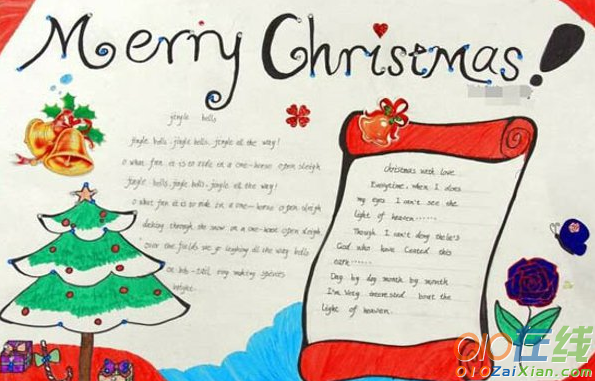 Merry Christmas!
jingle bells
jingle bells, jingle bells, jingle all the way!
o what fun it is to ride in a one-horse open sleigh
jingle bells, jingle bells, jingle all the way!
o what fun it is to ride in a one-horse open sleigh
dashing through the snow in a one-horse open sleigh
over the fields we go laughing all the way bells
on bob-tail ring making spirits
bright.
Christmas with love
Everytime, when I
my eyes I can't see the
light of heaven......
Though I can't
God who have this
Day by day month by month
I'm Very the
light of heaven.
010在线
010ZaiXian.com